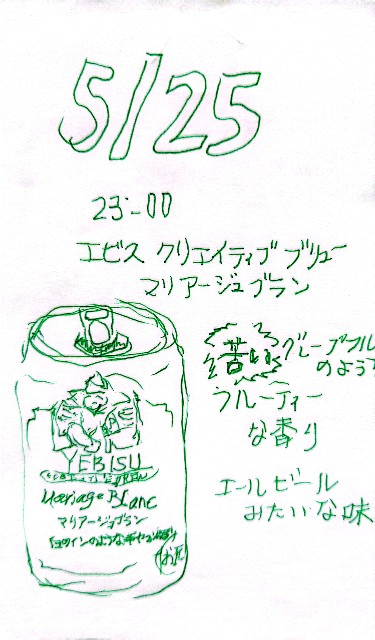 5/25
23:00
エビス クリエイティブブリュー
マリアージュブラン
苦い グレープフル
のような
フルーティー
な香り
エールビール
みたいな味
YEBISU
Mariage Blanc
マリアージュブラン
お酒